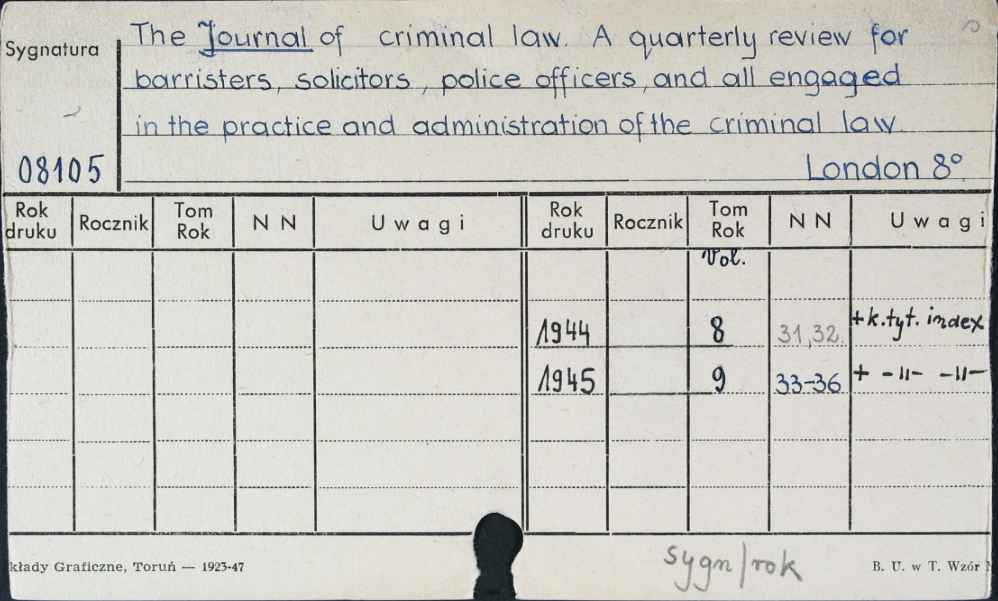 The Journal of criminal law. A quarterly review for
Sygnatura
barristers, solicitors, police officers, and all engaged
in the practice and administration of the criminal law.
08105
London 8°
Rok druku Rocznik Tom Rok NN Uwagi Rok druku Rocznik Tom Rok NN Uwagi
Vol.
1944 8 31,32 +k.tyt. index
1945 9 33-36 + -11- -11-
sygn/rok
kłady Graficzne, Toruń — 1923-47 B. U. w T. Wzór